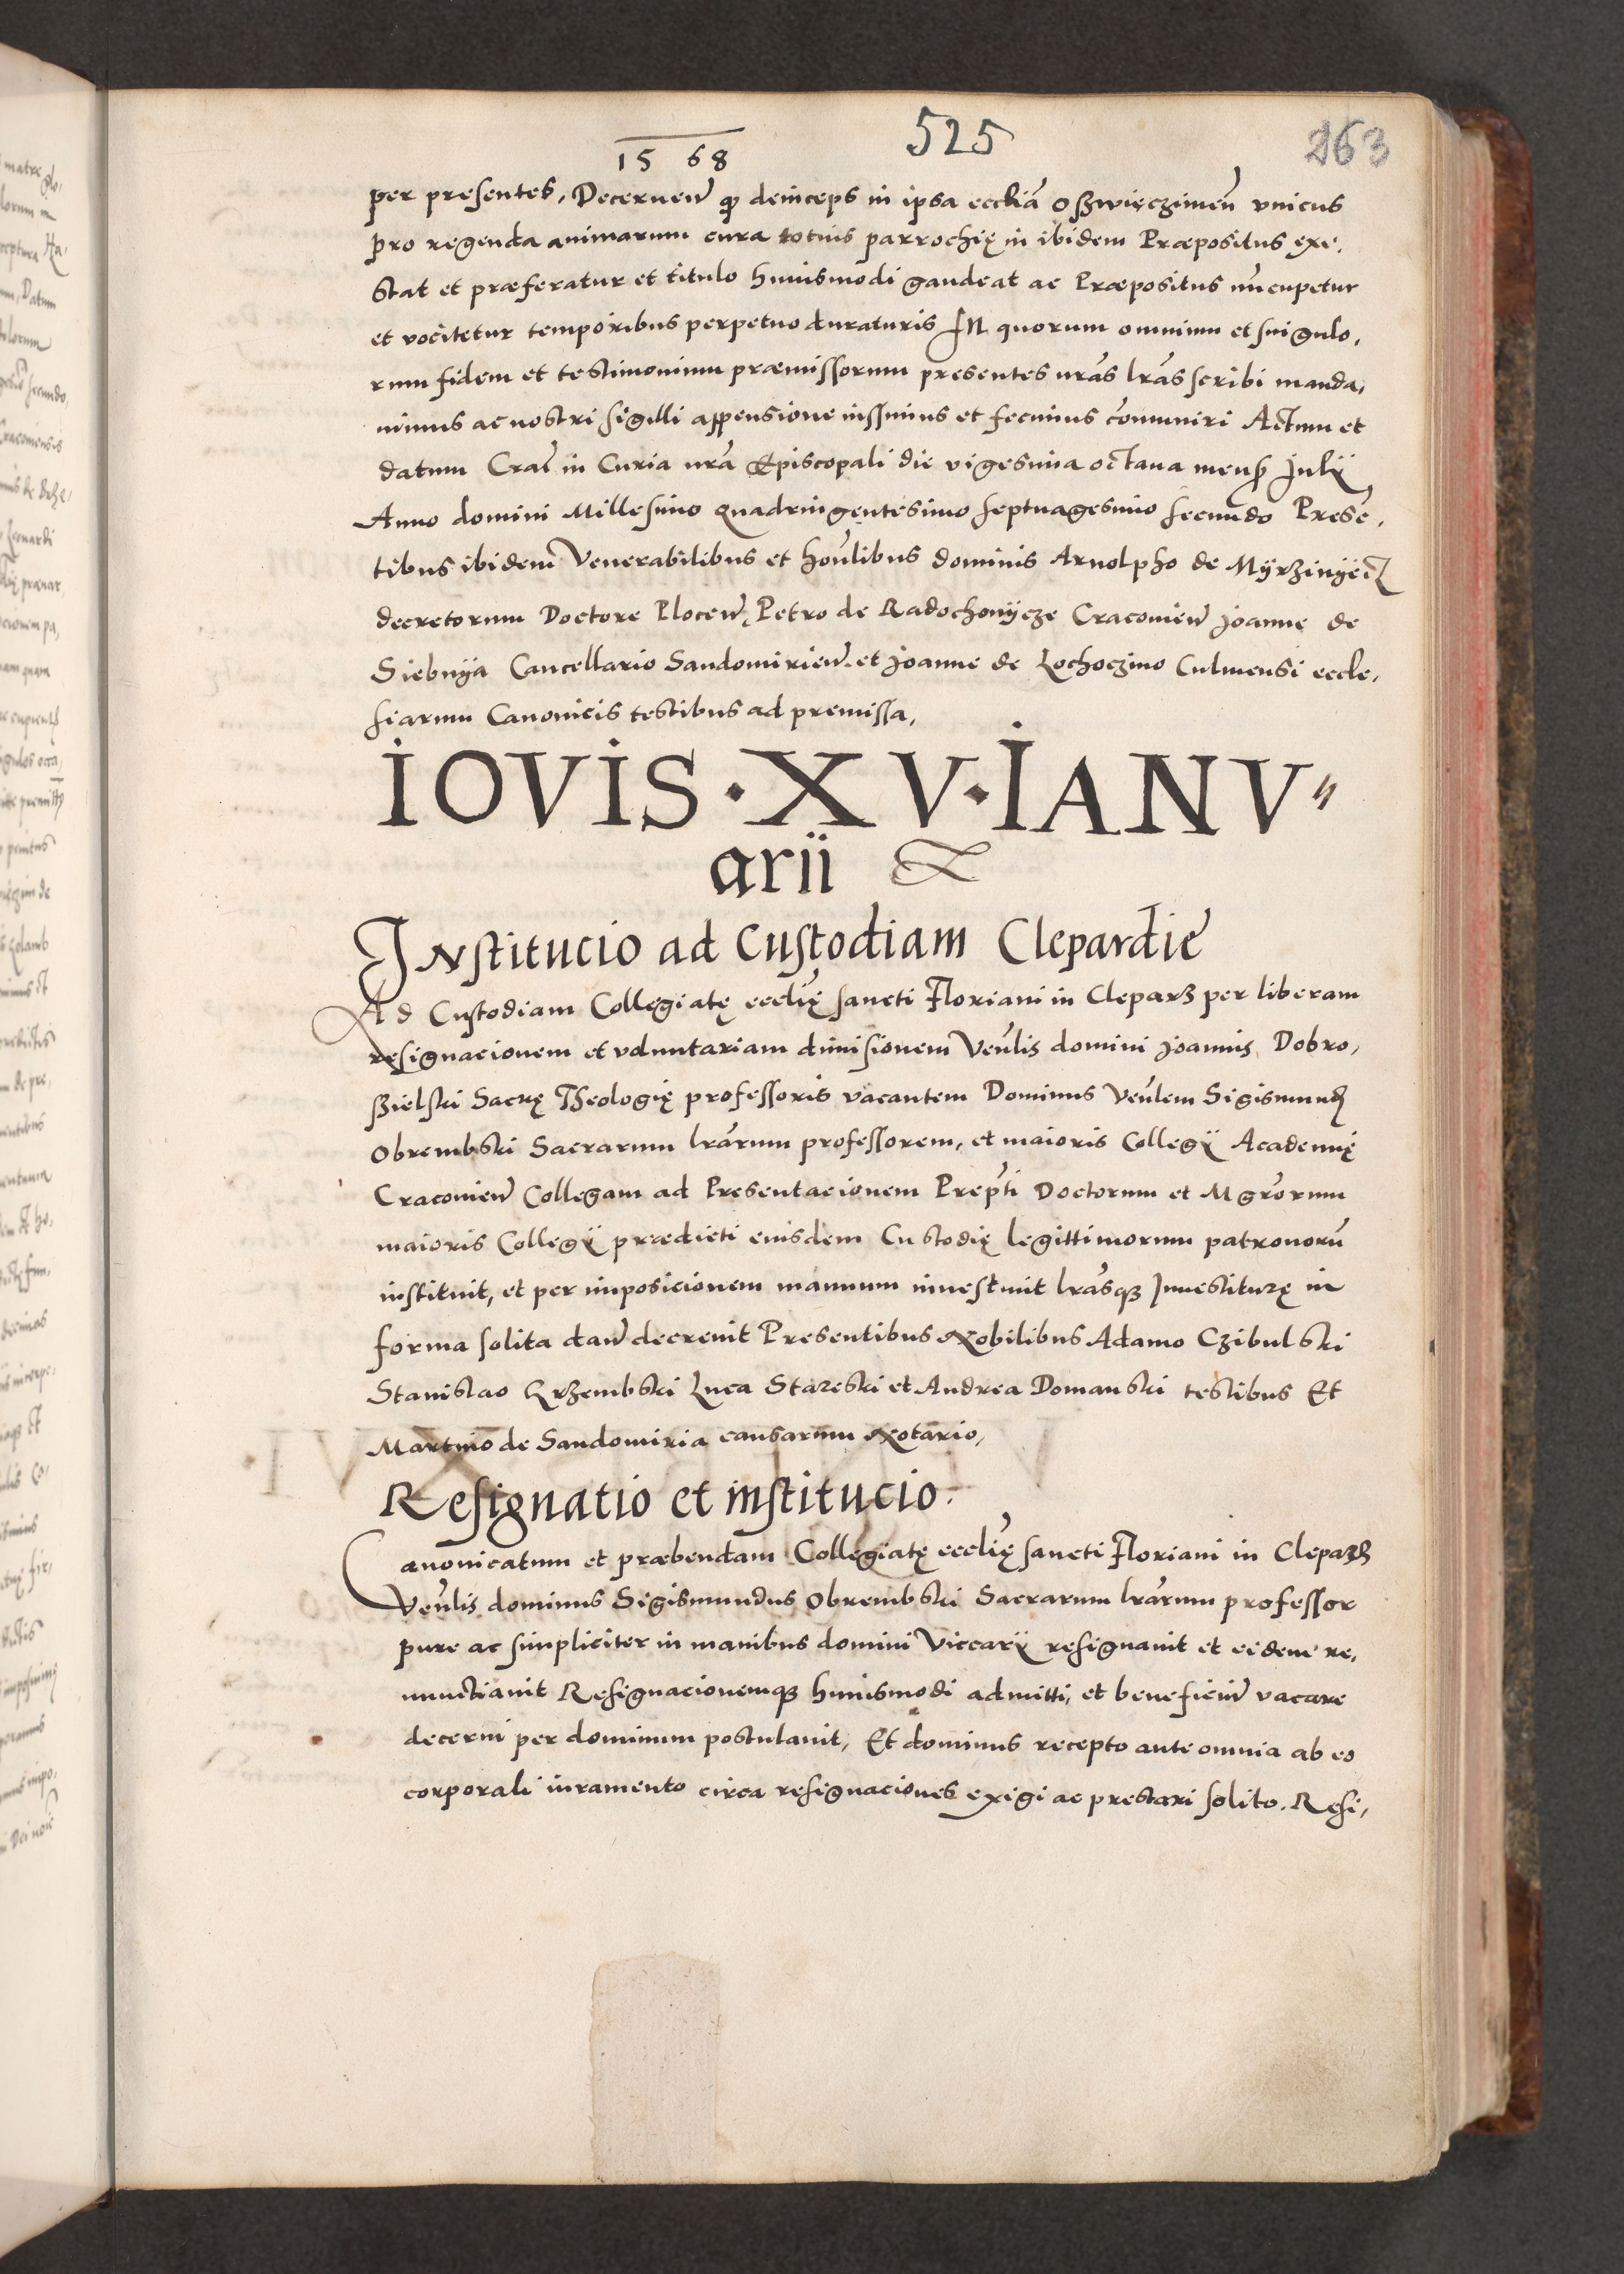 1568
525
263
per presentes, Decerneñ qp deinceps in ipsa eccliã Oszwięczimeñ vnicus
pro regenda animarum cura totius parrochię in ibidem Præpositus exi,
stat et præferatur et titulo huiusmodi gaudeat ac Præpositus nũcupetur
et vocitetur temporibus perpetuo duraturis IN quorum omnium et singulo,
rum fidem et testimonium præmissorum presentes nrãs lrãs scribi manda,
uimus ac nostri sigilli appensione iussimus et fecimus cõmuniri Actum et
datum Craĉ in Curia nrã Episcopali die vigesima octaua mensȩ Julij
Anno domini Millesimo quadringentesimo septuagesimo secundo Presẽ,
tibus ibidem Venerabilibus et hoñlibus dominis Arnolpho de Myrzinyecz
decretorum Doctore Ploceñ, Petro de Radochonijcze Cracovieñ Joanne de
Siebnija Cancellario Sandomirieñ et Joanne de Lochoczino Culmensi eccle,
siarum Canonicis testibus ad premissa,
IOVIS · XV · IANV"
arii
INstitucio ad Custodiam Clepardiẽ
Ad Custodiam Collegiatę eccłię sancti Floriani in Cleparz per liberam
resignacionem et voluntariam dimisionem Veñlis domini Joannis Dobro,
szielski Sacrę Theologię professoris vacantem Dominus Veñlem Sigismundũ
Obrembski Sacrarum lrãrum professorem, et maioris Collegij Academię
Cracovieñ Collegam ad Presentacionem Prepti Doctorum et Mgrorum
maioris Collegij prædicti eiusdem Custodię legittimorum patronorũ
instituit, et per imposicionem manuum inuestiuit lrãsqз Inuestiturę in
forma solita dañ decreuit Presentibus Nobilibus Adamo Czibulski
Stanislao Krzembski Luca Stareski et Andrea Domanski testibus Et
Martino de Sandomiria causarum Notario,
Resignatio et institucio.
Canonicatum et præbendam Collegiatę eccłię sancti Floriani in Cleparz
Veñlis dominus Sigismundus Obrembski Sacrarum lrãrum professor
pure ac simpliciter in manibus domini Viccarij resignauit et eidem re,
nunctiauit Resignacionemqз huiusmodi admitti, et beneficiũ vacare
decerni per dominum postulauit, Et dominus recepto ante omnia ab eo
corporali iuramento circa resignaciones exigi ac prestari solito. Resi,